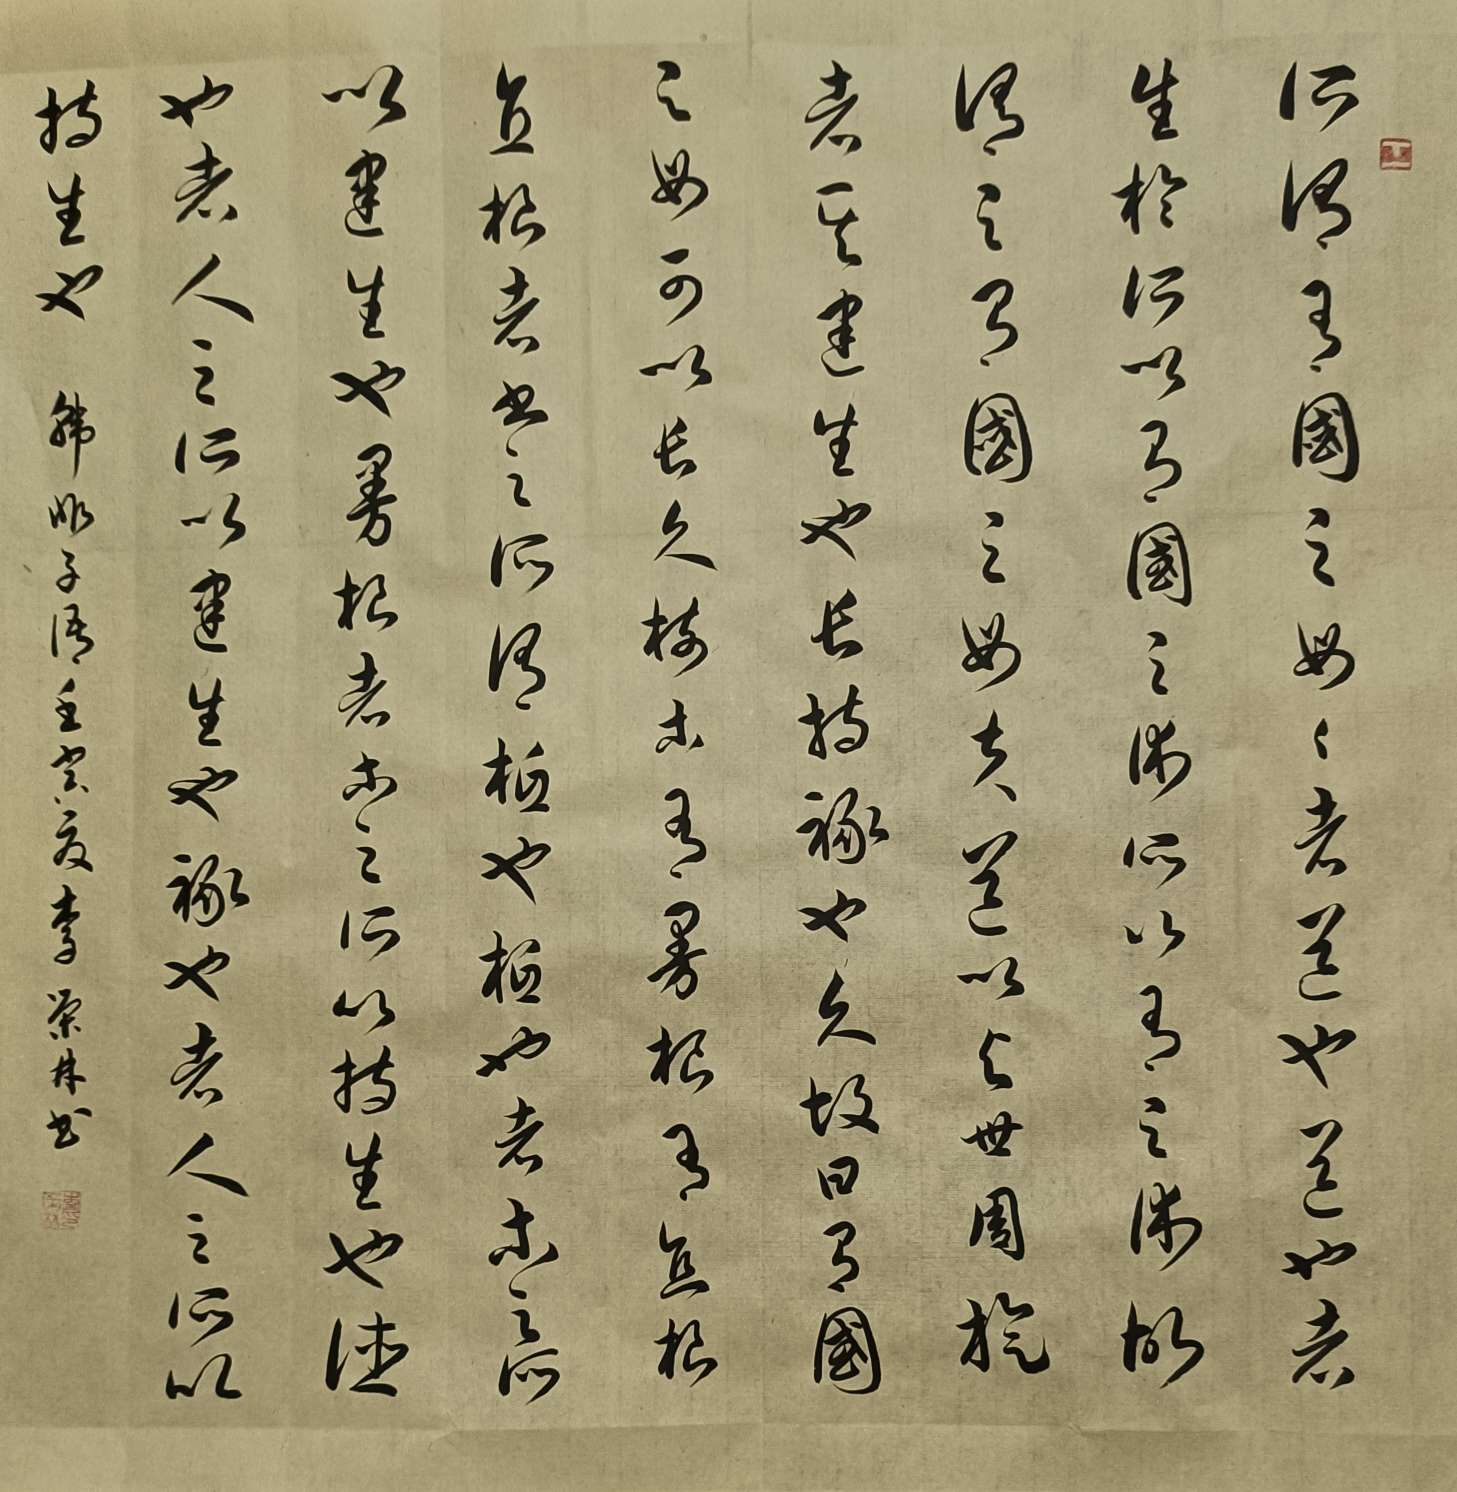 所謂有國之母々者道也道也者
生於所以有國之術所以有之術故
謂之有國之母夫道以與世周旋
者其建生也長持祿也久故曰有國
之母可以長久樹木有曼根有直根
直根者書之所謂柢也柢也者木之所
以建生也曼根者木之所以持生也德
也者人之所以建生也祿也者人之所以
持生也 韓非子語壬寅夏李榮林书